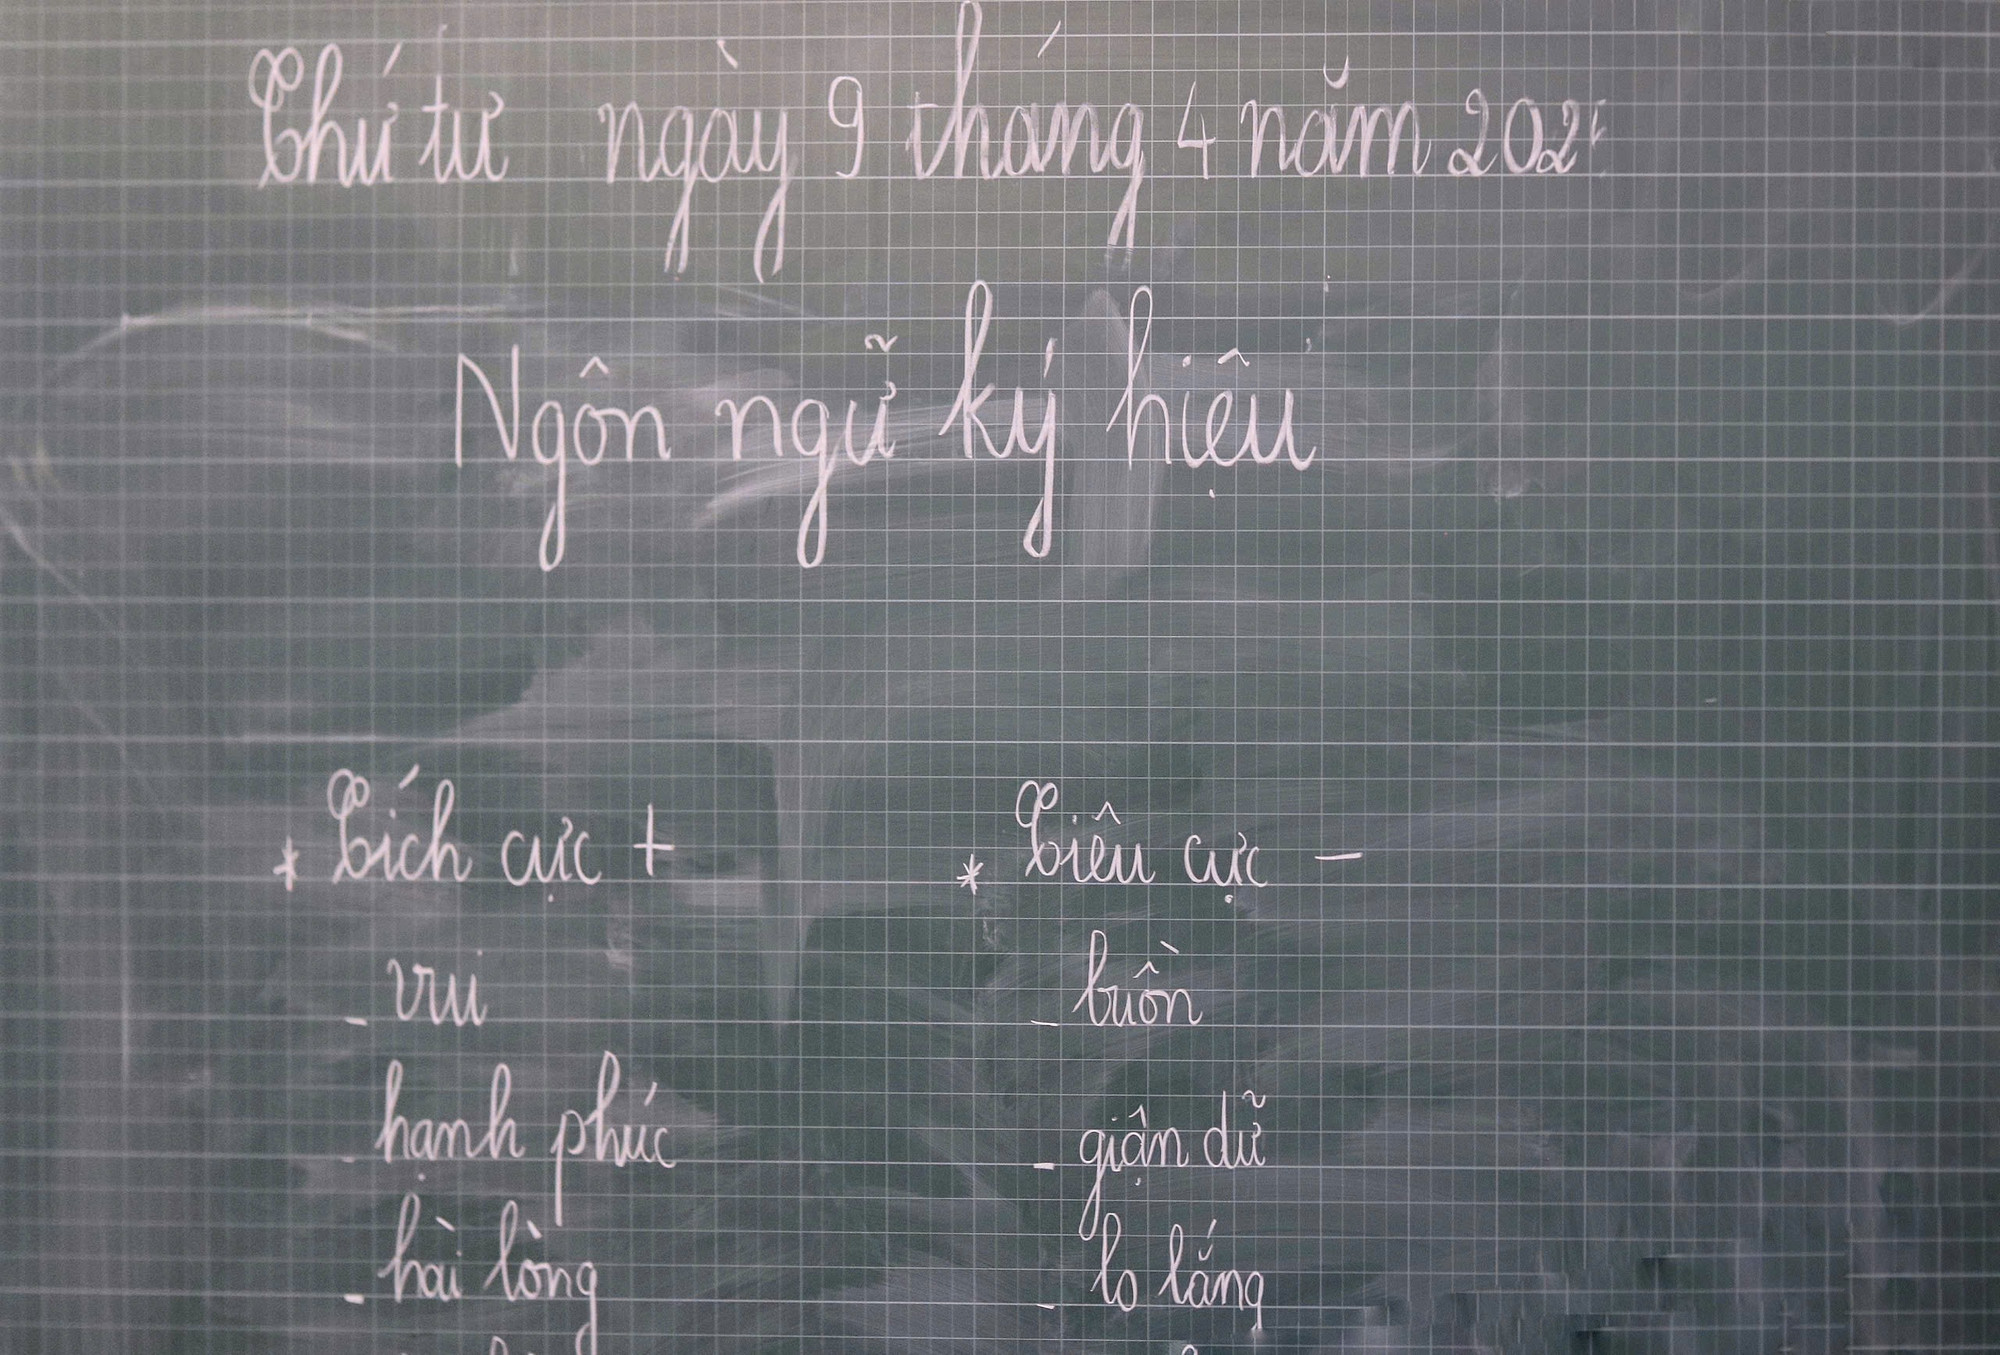 Thứ tư ngày 9 tháng 4 năm
Ngôn ngữ ký hiệu
* Tích cực +
- vui
- hạnh phúc
- hài lòng
* Tiêu cực -
- buồn
- giận dữ
- lo lắng